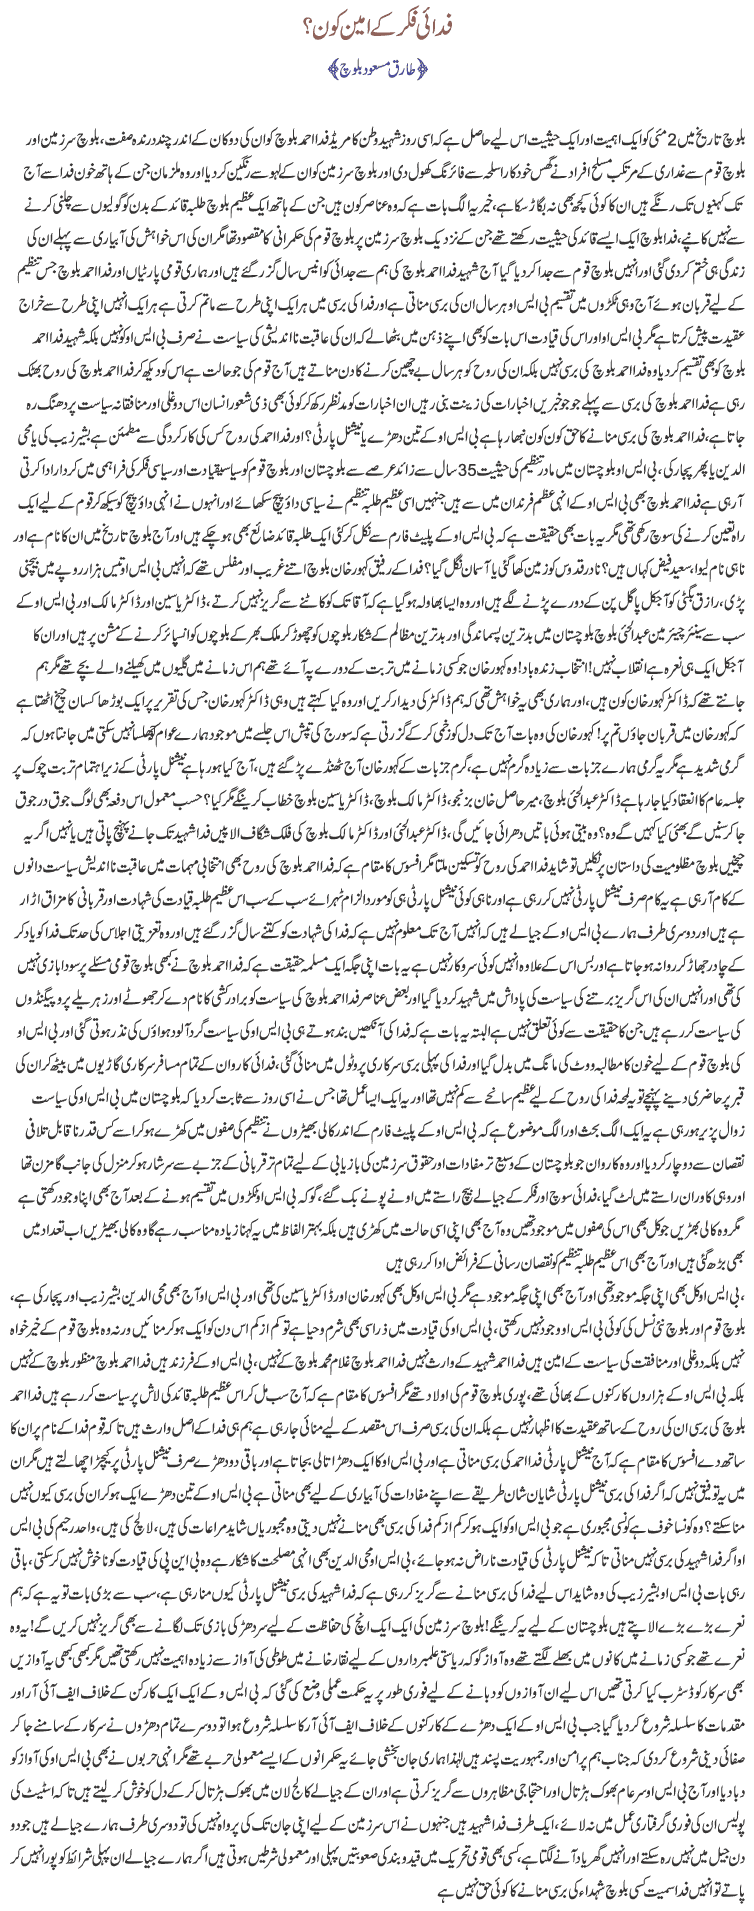 فدائی فکر کے امین کون؟
﴿طارق مسعود بلوچ﴾
بلوچ تاریخ میں 2 مئی کو ایک اہمیت اور ایک حیثیت اس لیے حاصل ہے کہ اسی روز شہید وطن کامریڈ فدا احمد بلوچ کو ان کی دوکان کے اندر چند درندہ صفت، بلوچ سرزمین اور
بلوچ قوم سے غداری کے مرتکب مسلح افراد نے گھس خودکار اسلحہ سے فائرنگ کھول دی اور بلوچ سرزمین کو ان کے لہو سے رنگین کردیا اور وہ ملزمان جن کے ہاتھ خون فدا سے آج
تک کہنیوں تک رنگے ہیں ان کا کوئی کچھ بھی نہ بگاڑ سکا ہے، خیر یہ الگ بات ہے کہ وہ عناصر کون ہیں جن کے ہاتھ ایک عظیم بلوچ طلبہ قائد کے بدن کو گولیوں سے چلنی کرنے
سے نہیں کانپے، فدا بلوچ ایک ایسے قائد کی حیثیت رکھتے تھے جن کے نزدیک بلوچ سرزمین پر بلوچ قوم کی حکمرانی کا مقصود تھا مگر ان کی اس خواہش کی آبیاری سے پہلے ان کی
زندگی ہی ختم کردی گئی اور انہیں بلوچ قوم سے جدا کردیا گیا آج شہید فدا احمد بلوچ کی ہم سے جدائی کو انیس سال گزر گئے ہیں اور ہماری قومی پارٹیاں اور فدا احمد بلوچ جس تنظیم
کے لیے قربان ہوئے آج وہی ٹکڑوں میں تقسیم بی ایس او ہر سال ان کی برسی مناتی ہے اور فدا کی برسی میں ہر ایک اپنی طرح سے ماتم کرتی ہے ہر ایک انہیں اپنی طرح سے خراج
عقیدت پیش کرتا ہے مگر بی ایس او اور اس کی قیادت اس بات کو بھی اپنے ذہن میں بٹھالے کہ ان کی عاقبت نا اندیشی کی سیاست نے صرف بی ایس او کو نہیں بلکہ شہید فدا احمد
کو بھی تقسیم کردیا وہ فدا احمد بلوچ کی برسی نہیں بلکہ ان کی روح کو ہر سال بے چھین کرنے کا دن مناتے ہیں آج قوم کی جو حالت ہے اس کو دیکھ کر فدا احمد بلوچ کی روح بھٹک
رہی ہے فدا احمد بلوچ کی برسی سے پہلے جو جو خبریں اخبارات کی زینت بنی رہیں ان اخبارات کو مدنظر رکھ کر کوئی بھی ذی شعور انسان اس دوغلی اور منافقانہ سیاست پر دھنگ رہ
جاتا ہے، فدا احمد بلوچ کی برسی منانے کا حق کون کون نبھا رہا ہے بی ایس او کے تین دھڑے یا نیشنل پارٹی؟ اور فدا احمد کی روح کس کی کارکردگی سے مطمئن ہے، بشیر زیب کی یا محی
الدین یا پھر پجار کی، بی ایس او بلوچستان میں مادر تنظیم کی حیثیت 35 سال سے زائد عرصے سے بلوچستان اور بلوچ قوم کو سیاسی قیادت اور سیاسی فکر کی فراہمی میں کردار ادا کرتی
آرہی ہے فدا احمد بلوچ بھی بی ایس او کے انہی عظم فرزندان میں سے ہیں جنہیں اسی عظیم طلبہ تنظیم نے سیاسی داؤ پیچ سکھائے اور انہوں نے انہی داؤ پیچ کو سیکھ کر قوم کے لیے ایک
راہ تعین کرنے کی سوچ رکھی تھی مگر یہ بات بھی حقیقت ہے کہ بی ایس او کے پلیٹ فارم سے نکل کر کئی ایک طلبہ قائد ضائع بھی ہوچکے ہیں اور آج بلوچ تاریخ میں ان کا نام ہے اور
ناہی نام لیوا، سعید فیض کہاں ہیں؟ نادر قدوس کو زمین کھا گئی یا آسمان نگل گیا؟ فدا کے رفیق کہور خان بلوچ اتنے غریب اور مفلس تھے کہ انہیں بی ایس او تیس ہزار روپے میں بیچنی
پڑی، رازق بگٹی کو آجکل پاگل پن کے دورے پڑنے لگے ہیں اور وہ ایسا بھاولہ ہوگیا ہے کہ آقا تک کو کاٹنے سے گریز نہیں کرتے، ڈاکٹر یاسین اور ڈاکٹر مالک اور بی ایس او کے
سب سے سینئر چیئرمین عبدالحئی بلوچ بلوچستان میں بدترین پسماندگی اور بدترین مظالم کے شکار بلوچوں کو چھوڑ کر ملک بھر کے بلوچوں کو انسپائر کرنے کے مشن پر ہیں اور ان کا
آجکل ایک ہی نعرہ ہے انقلاب نہیں! انتخاب زندہ باد! وہ کہور خان جو کسی زمانے میں تربت کے دورے پہ آئے تھے ہم اس زمانے میں گلیوں میں کھیلنے والے بچے تھے مگر ہم
جانتے تھے کہ ڈاکٹر کہور خان کون ہیں، اور ہماری بھی یہ خواہش تھی کہ ہم ڈاکٹر کی دیدار کریں اور وہ کیا کہتے ہیں وہی ڈاکٹر کہور خان جس کی تقریر پر ایک بوڑھا کسان چیخ اٹھتا ہے
کہ کہور خان میں قربان جاؤں تم پر! کہور کی وہ بات آج تک دل کو زخمی کرکے گزرتی ہے کہ سورج کی تپش اس جلسے میں موجود ہمارے عوام کو جھلسا نہیں سکتی میں جانتا ہوں کہ
گرمی شدید ہے مگر یہ گرمی ہمارے جزبات سے زیادہ گرم نہیں ہے، گرم جزبات کے کہور خان آج ٹھنڈے پڑ گئے ہیں، آج کیا ہو رہا ہے نیشنل پارٹی کے زیر اہتمام تربت چوک پر
جلسہ عام کا انعقاد کیا جارہا ہے ڈاکٹر عبدالحئی بلوچ، میر حاصل خان بزنجو، ڈاکٹر مالک بلوچ، ڈاکٹر یاسین بلوچ خطاب کرینگے مگر کیا؟ حسب معمول اس دفعہ بھی لوگ جوق در جوق
جاکر سنیں گے بھئی کیا کہیں گے وہ؟ وہ بیتی ہوئی باتیں دھرائی جائیں گی، ڈاکٹر عبدالحئی اور ڈاکٹر مالک بلوچ کی فلک شگاف الاپیں فدا شہید تک جانے پہنچ پاتی ہیں یا نہیں اگر یہ
چیخیں بلوچ مظلومیت کی داستان پر نکلیں تو شاید فدا احمد کی روح کو تسکین ملتا مگر افسوس کا مقام ہے کہ فدا احمد بلوچ کی روح بھی انتخابی مہمات میں عاقبت نا اندیش سیاست دانوں
کے کام آرہی ہے یہ کام صرف نیشنل پارٹی نہیں کررہی ہے اور ناہی کوئی نیشنل پارٹی ہی کو مورد الزام ٹہرائے سب کے سب اس عظیم طلبہ قیادت کی شہادت اور قربانی کا مزاق اڑا رہے
ہیں اور دوسری طرف ہمارے بی ایس او کے جیالے ہیں کہ انہیں آج تک معلوم نہیں ہے کہ فدا کی شہادت کو کتنے سال گزر گئے ہیں اور وہ تعزیتی اجلاس کی حد تک فدا کو یاد کر
کے چادر جھاڑ کر روانہ ہوجاتا ہے اور بس اس کے علاوہ انہیں کوئی سروکار نہیں ہے یہ بات اپنی جگہ ایک مسلمہ حقیقت ہے کہ فدا احمد بلوچ نے کبھی بلوچ قومی مسئلے پر سودا بازی نہیں
کی تھی اور انہیں ان کی اس گریز برتنے کی سیاست کی پاداش میں شہید کردیا گیا اور بعض عناصر فدا احمد بلوچ کی سیاست کو برادر کشی کا نام دے کر جھوٹے اور زہریلے پروپیگنڈوں
کی سیاست کررہے ہیں جن کا حقیقت سے کوئی تعلق نہیں ہے البتہ یہ بات ہے کہ فدا کی آنکھیں بند ہوتے ہی بی ایس او کی سیاست گرد آلود ہواؤں کی نذر ہوتی گئی اور بی ایس او
کی بلوچ قوم کے لیے خون کا مطالبہ ووٹ کی مانگ میں بدل گیا اور فدا کی پہلی برسی سرکاری پروٹول میں منائی گئی، فدائی کاروان کے تمام مسافر سرکاری گاڑیوں میں بیٹھ کر ان کی
قبر پر حاضری دینے پہنچے تو یہ لمحہ فدا کی روح کے لیے عظیم سانحے سے کم نہیں تھا اور یہ ایک ایسا عمل تھا جس نے اسی روز سے ثابت کردیا کہ بلوچستان میں بی ایس او کی سیاست
زوال پزیر ہورہی ہے یہ ایک الگ بحث اور الگ موضوع ہے کہ بی ایس او کے پلیٹ فارم کے اندر کالی بھیڑوں نے تنظیم کی صفوں میں کھڑے ہوکر اسے کس قدر ناقابل تلافی
نقصان سے دوچار کردیا اور وہ کاروان جو بلوچستان کے وسیع تر مفادات اور حقوق سرزمین کی بازیابی کے لیے تمام تر قربانی کے جزبے سے سرشار ہوکر منزل کی جانب گامزن تھا
اور وہی کاروان راستے میں لٹ گیا، فدائی سوچ اور فکر کے جیالے بیچ راستے میں اونے پونے بک گئے، گوکہ بی ایس او ٹکڑوں میں تقسیم ہونے کے بعد آج بھی اپنا وجود رکھتی ہے
مگر وہ کالی بھڑیں جو کل بھی اس کی صفوں میں موجود تھیں وہ آج بھی اپنی اسی حالت میں کھڑی ہیں بلکہ بہتر الفاظ میں یہ کہنا زیادہ مناسب رہے گا وہ کالی بھیڑیں اب تعداد میں
بھی بڑھ گئی ہیں اور آج بھی اس عظیم طلبہ تنظیم کو نقصان رسانی کے فرائض ادا کررہی ہیں
، بی ایس او کل بھی اپنی جگہ موجود تھی اور آج بھی اپنی جگہ موجود ہے مگر بی ایس او کل بھی کہور خان اور ڈاکٹر یاسین کی تھی اور بی ایس او آج بھی محی الدین بشیر زیب اور پجار کی ہے،
بلوچ قوم اور بلوچ نئی نسل کی کوئی بی ایس او وجود نہیں رکھتی، بی ایس او کی قیادت میں ذرا سی بھی شرم و حیا ہے تو کم از کم اس دن کو ایک ہوکر منائیں ورنہ وہ بلوچ قوم کے خیر خواہ
نہیں بلکہ دوغلی اور منافقت کی سیاست کے امین ہیں فدا احمد شہید کے وارث نہیں فدا احمد بلوچ غلام محمد بلوچ کے نہیں، بی ایس او کے فرزند ہیں فدا احمد بلوچ منظور بلوچ کے نہیں
بلکہ بی ایس او کے ہزاروں کارکنوں کے بھائی تھے، پوری بلوچ قوم کی اولاد تھے مگر افسوس کا مقام ہے کہ آج سب مل کر اس عظیم طلبہ قائد کی لاش پر سیاست کررہے ہیں فدا احمد
بلوچ کی برسی ان کی روح کے ساتھ عقیدت کا اظہار نہیں ہے بلکہ ان کی برسی صرف اس مقصد کے لیے منائی جارہی ہے ہم ہی فدا کے اصل وارث ہیں تاکہ قوم فدا کے نام پر ان کا
ساتھ دے افسوس کا مقام ہے کہ آج نیشنل پارٹی فدا احمد کی برسی مناتی ہے اور بی ایس او کا ایک دھڑا تالی بجاتا ہے اور باقی دو دھڑے صرف نیشنل پارٹی پر کیچڑ اچھالتے ہیں مگر ان
میں یہ توفیق نہیں کہ اگر فدا کی برسی نیشنل پارٹی شایان شان طریقے سے اپنے مفادات کی آبیاری کے لیے بھی مناتی ہے بی ایس او کے تین دھڑے ایک ہوکر ان کی برسی کیوں نہیں
مناسکتے؟ وہ کونسا خوف ہے کونسی مجبوری ہے جو بی ایس او کو ایک ہوکر کم از کم فدا کی برسی بھی منانے نہیں دیتی وہ مجبوریاں شاید مراعات کی ہیں، لالچ کی ہیں، واحد رحیم کی بی ایس
او اگر فدا شہید کی برسی نہیں مناتی تاکہ نیشنل پارٹی کی قیادت ناراض نہ ہوجائے، بی ایس او محی الدین بھی انہی مصلحت کا شکار ہے وہ بی این پی کی قیادت کو ناخوش نہیں کرسکتی، باقی
رہی بات بی ایس او بشیر زیب کی وہ شاید اس لیے فدا کی برسی منانے سے گریز کررہی ہے کہ فدا شہید کی برسی نیشنل پارٹی کیوں منارہی ہے، سب سے بڑی بات تو یہ ہے کہ ہم
نعرے بڑے بڑے الاپتے ہیں بلوچستان کے لیے یہ کرینگے! بلوچ سرزمین کی ایک ایک انچ کی حفاظت کے لیے سر دھڑ کی بازی تک لگانے سے بھی گریز نہیں کریں گے! یہ وہ
نعرے تھے جو کسی زمانے میں کانوں میں بھلے لگتے تھے وہ آواز گوکہ ریاستی علمبرداروں کے لیے نقار خانے میں طوطی کی آواز سے زیادہ اہمیت نہیں رکھتی تھیں مگر کبھی کبھی یہ آوازیں
بھی سرکار کو ڈسٹرب کیا کرتی تھیں اس لیے ان آوازوں کو دبانے کے لیے فوری طور پر یہ حکمت عملی وضع کی گئی کہ بی ایس او کے ایک ایک کارکن کے خلاف ایف آئی آر اور
مقدمات کا سلسلہ شروع کردیا گیا جب بی ایس او کے ایک دھڑے کے کارکنوں کے خلاف ایف آئی آر کا سلسلہ شروع ہوا تو دوسرے تمام دھڑوں نے سرکار کے سامنے جاکر
صفائی دینی شروع کردی کہ جناب ہم پرامن اور جمہوریت پسند ہیں لہٰذا ہماری جان بخشی جائے یہ حکمرانوں کے ایسے معمولی حربے تھے مگر انہی حربوں نے بھی بی ایس او کی آواز کو
دبادیا اور آج بی ایس او سر عام بھوک ہڑتال اور احتجاجی مظاہروں سے گریز کرتی ہے اور ان کے جیالے کالج لان میں بھوک ہڑتال کرکے دل کو خوش کرلیتے ہیں تاکہ اسٹیٹ کی
پولیس ان کی فوری گرفتاری عمل میں نہ لائے، ایک طرف فدا شہید ہیں جنہوں نے اس سرزمین کے لیے اپنی جان تک کی پرواہ نہیں کی تو دوسری طرف ہمارے جیالے ہیں جو دو
دن جیل میں نہیں رہ سکتے اور انہیں گھر یاد آنے لگتا ہے، کسی بھی قومی تحریک میں قید و بند کی صعوبتیں پہلی اور معمولی شرطیں ہوتی ہیں اگر ہمارے جیالے ان پہلی شرائط کو پورا نہیں کر
پاتے تو انہیں فدا سمیت کسی بلوچ شہداء کی برسی منانے کا کوئی حق نہیں ہے